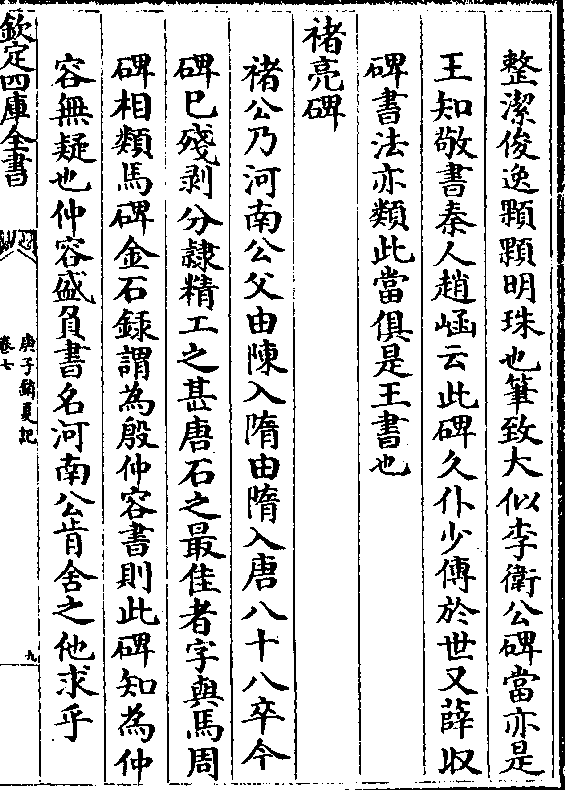 整潔俊逸顆顆明珠也筆致大似李衛公碑當亦是
王知敬書秦人趙崡云此碑久仆少傳於世又薛收
碑書法亦類此當俱是王書也
褚亮碑
褚公乃河南公父由陳入隋由隋入唐八十八卒今
碑已殘剥分隷精工之甚唐石之最佳者字與馬周
碑相類馬碑金石録謂為殷仲容書則此碑知為仲
容無疑也仲容盛負書名河南公肯舍之他求乎
欽定四庫全書
庚子銷夏記
卷七
九